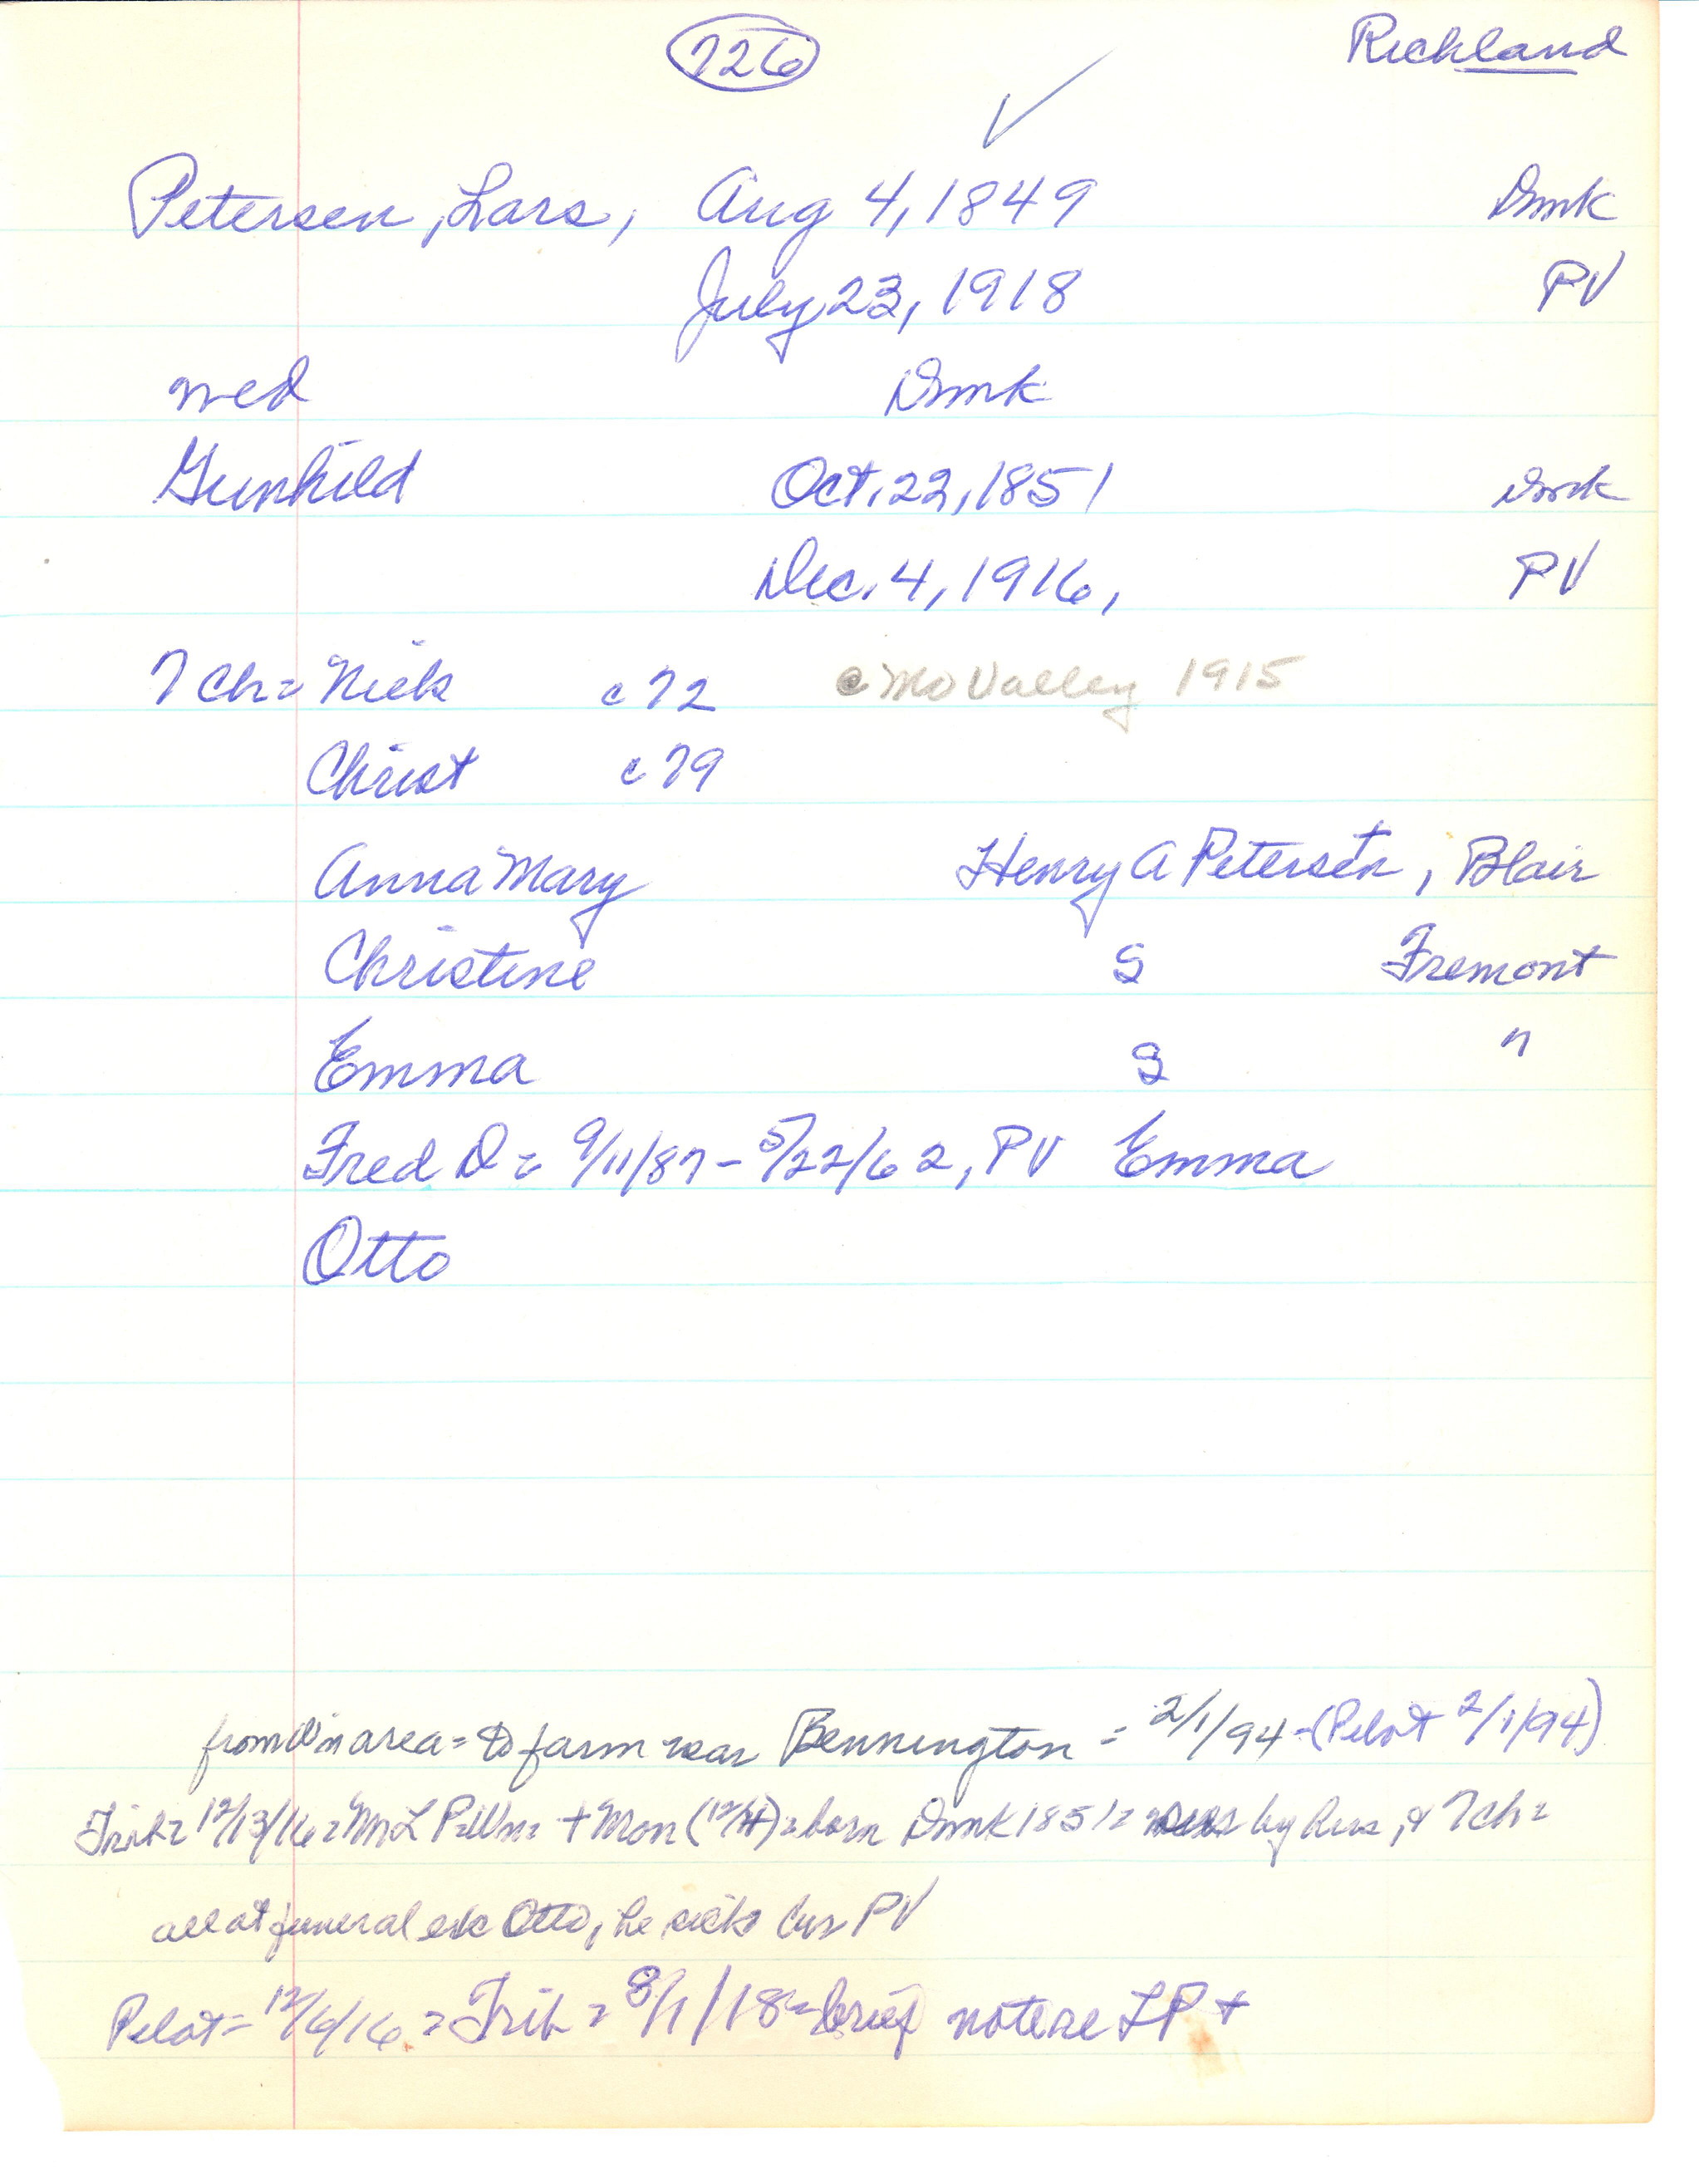 726 Richland
✓
Petersen, Lars, Aug 4, 1849 Dmk
July 23, 1918 PV
wed Dmk
Gunhild Oct. 22, 1851 Dmk
Dec. 4, 1916, PV
7 Ch = Nick c 72 @ Mo Valley 1915
Christ c 79
Anna Mary Henry A Petersen, Blair
Christine S Fremont
Emma S "
Fred D = 9/11/87 - 5/22/62, PV Emma
Otto
from area = to farm near Bennington = 2/1/94 - (Pilot 2/1/94)
Trib = 12/13/16 = Mrs L P + Mon (12/4) = born Dmk 1851 = by hus, & 7 ch =
all at funeral exc Otto, he sick bur PV
Pilot = 12/6/16 = Trib = 8/1/18 = brief note re LP +